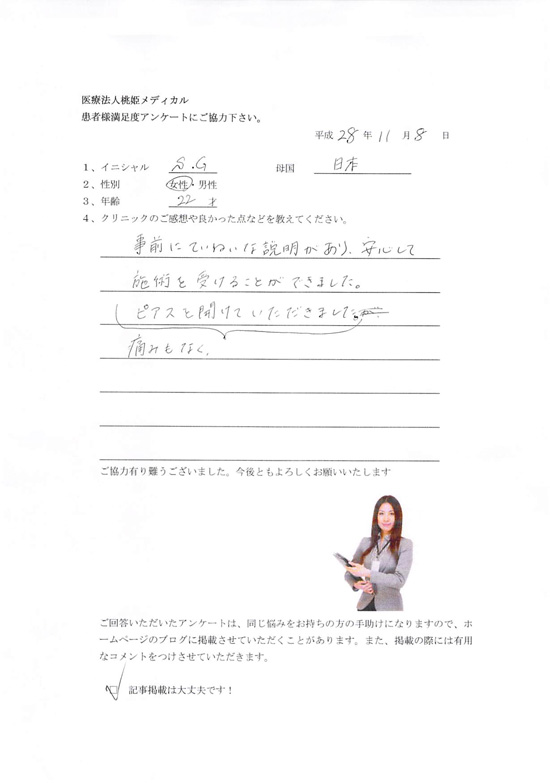 医療法人桃姫メディカル
患者様満足度アンケートにご協力下さい。
平成 28 年 11 月 8 日
1、イニシャル S.G 母国 日本
2、性別 女性・男性
3、年齢 22 才
4、クリニックのご感想や良かった点などを教えてください。
事前にていねいな説明があり、安心して
施術を受けることができました。
ピアスを開けていただきました
痛みもなく、
ご協力有り難うございました。今後ともよろしくお願いいたします
ご回答いただいたアンケートは、同じ悩みをお持ちの方の手助けになりますので、ホ
ームページのブログに掲載させていただくことがあります。また、掲載の際には有用
なコメントをつけさせていただきます。
記事掲載は大丈夫です！